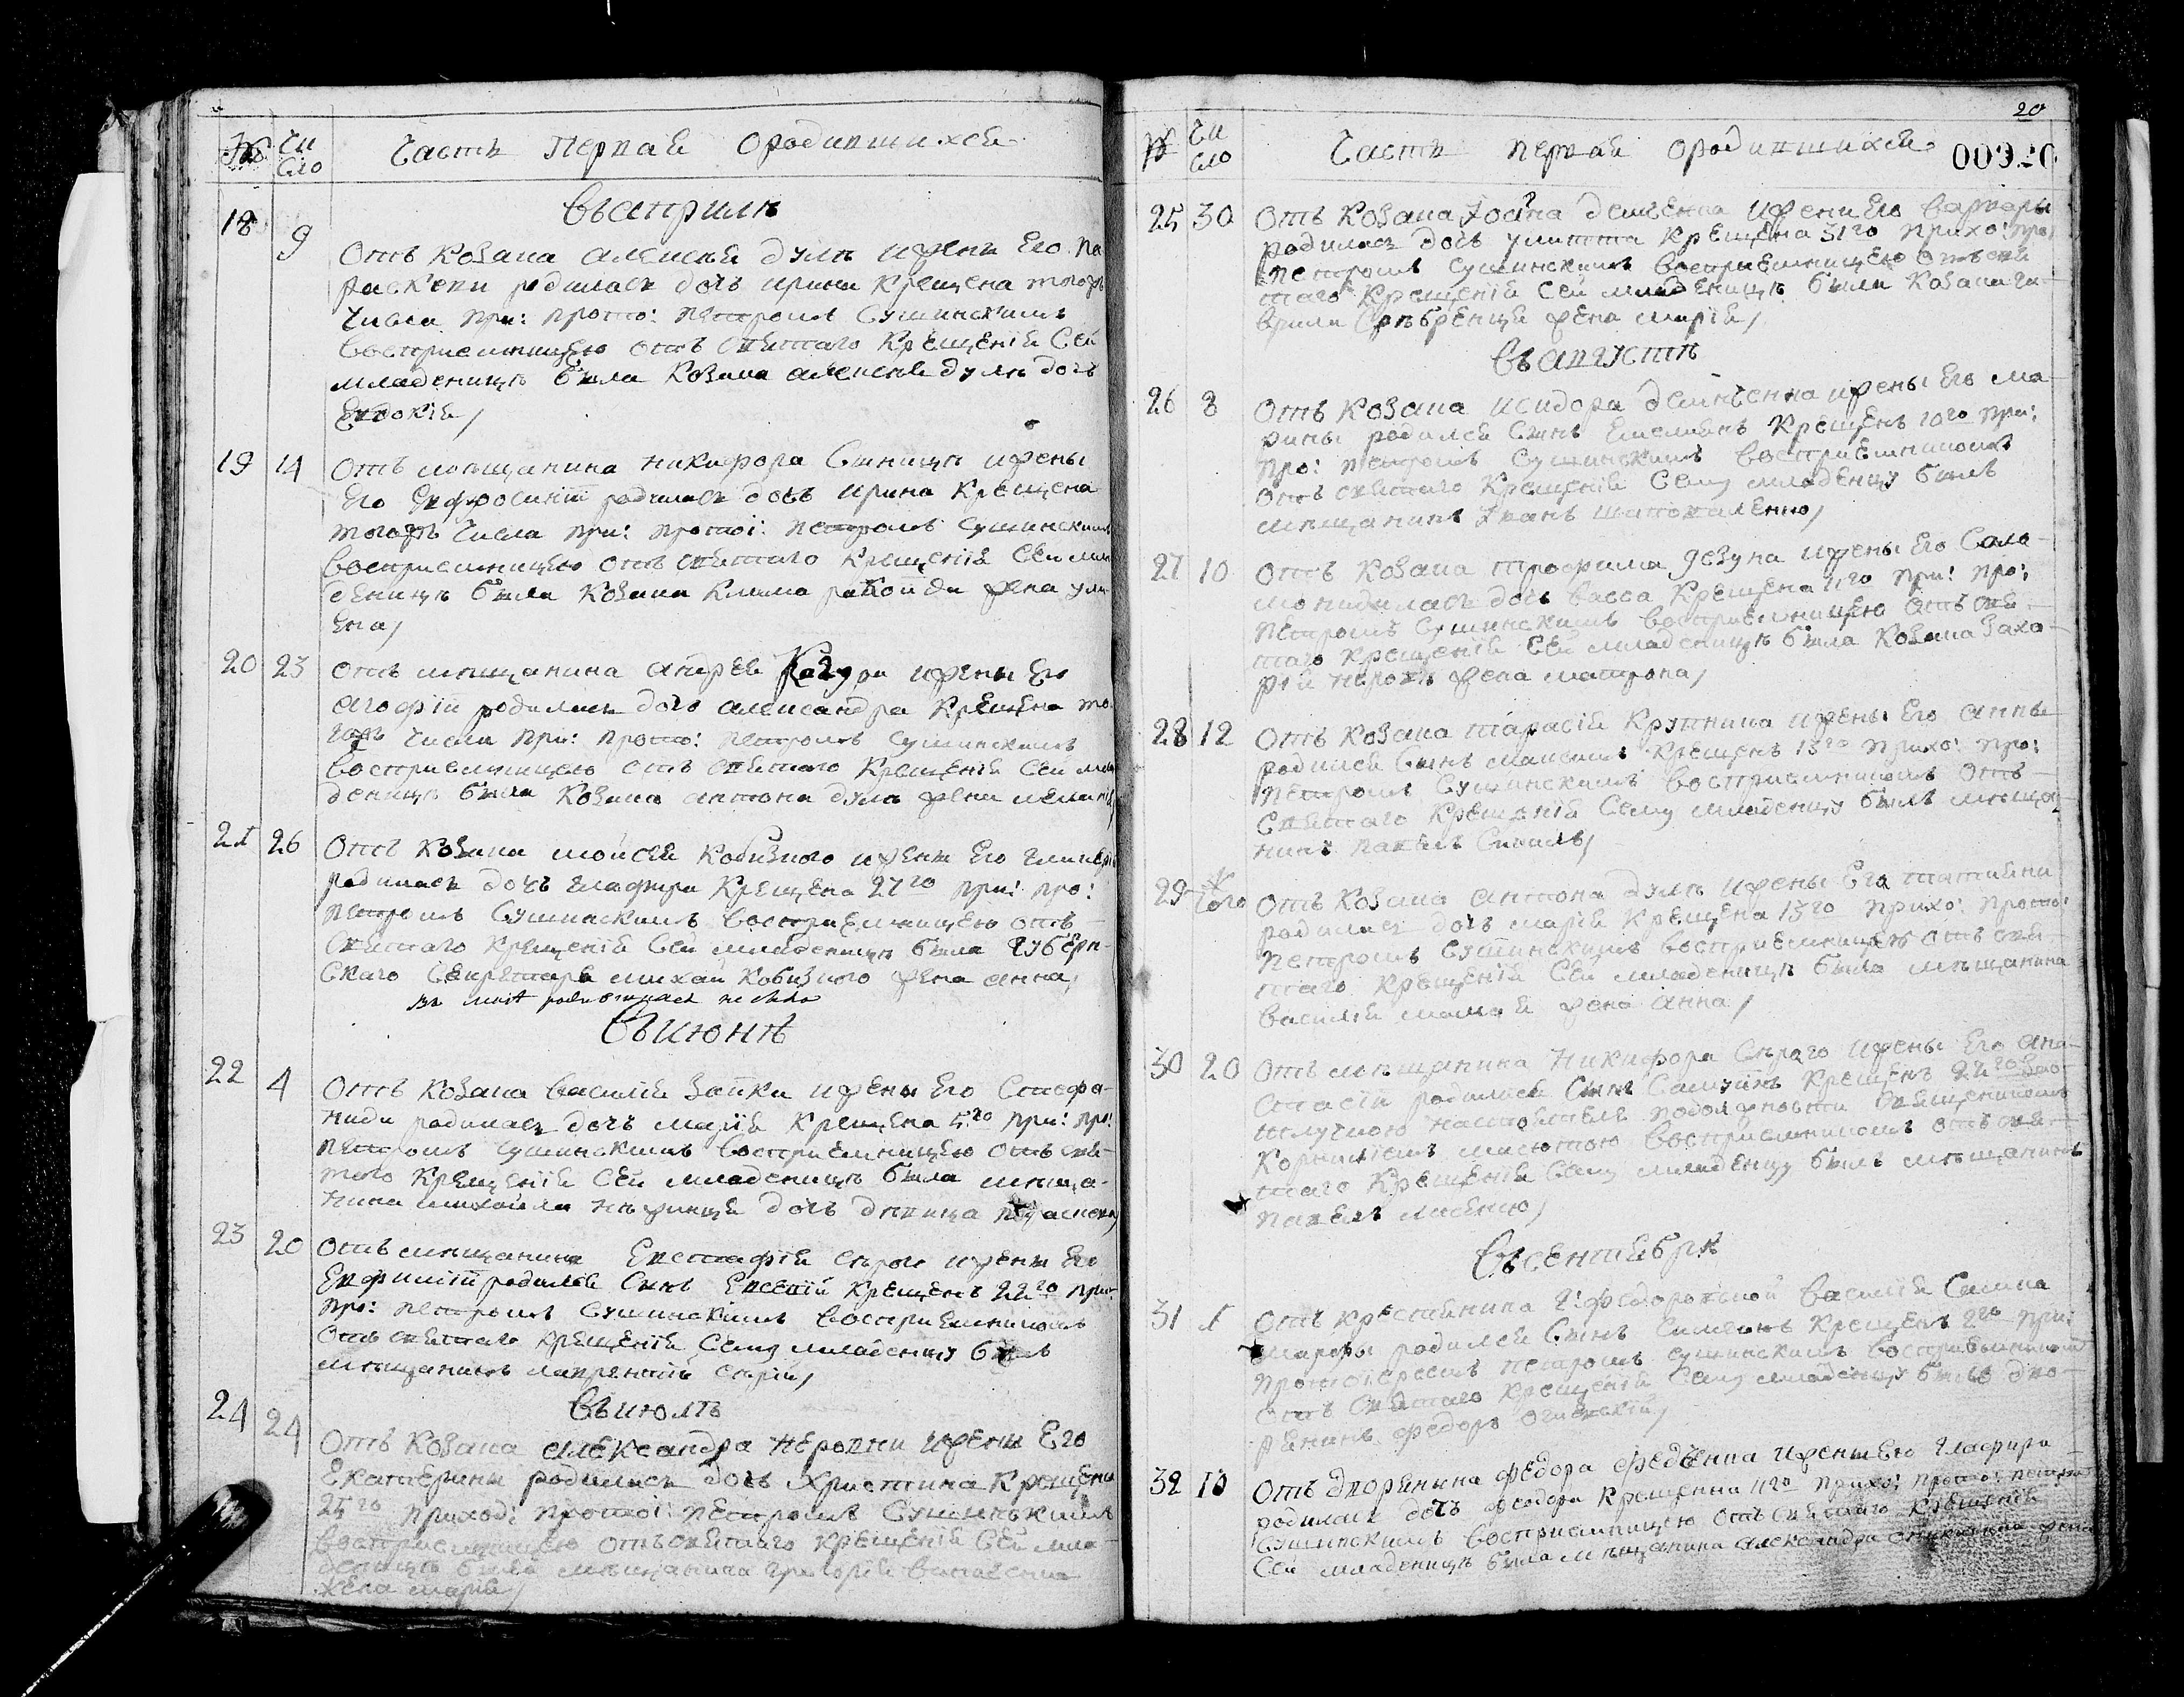 № Чи
сло
Часть Первая ородившихся
Въ априлѣ
18 9 Отъ козака алексея дулѣ ижены Его Па
раскеви родилась дочь ирина крещена тогожъ
числа при: прото: петромъ Сушинскимъ
восприемницею отъ святаго крещенія Сей
младеницѣ была козака алексея дулѣ дочь
Евдокія
19 14 Отъ мѣщанина никифора Синици ижены
Его Евфросиніи родилась дочь ирина крещена
тогожъ числа при: протоі: петромъ Сушинскимъ
восприемницею отъ святаго крещенія Сей мла
деницѣ была козака клима жена ули
ена
20 23 Отъ мѣщанина андрея Качури ижены Его
агафіи родилась дочь александра крещена то
гожъ числа при: прото: петромъ Сушинскимъ
восприемницею отъ святаго крещенія Сей мла
деницѣ была козака антона дулѣ жена меланія
21 26 Отъ козака мойсея кобизкого ижены Его гликерии
родилась дочь глафира крещена 27го при: про:
петромъ Сушинскимъ восприемницею отъ
святаго крещенія Сей младеницѣ была губерн-
скаго Секретаря михаи кобизкого жена анна
въ маіѣ
Въ июнѣ
22 4 Отъ козака василія заики ижены Его Стефа-
ниди родилась дочь марія крещена 5го при: про:
петромъ Сушинскимъ восприемницею отъ свя-
того крещенія Сей младеницѣ была мѣща-
нина михайла дочь девица параскева
23 20 Отъ мѣщанина Евстафія сѣрого ижены Его
Евфиміи родился Сынъ Евсевій крещенъ 22го при:
про: петромъ Сушинскимъ восприемникомъ
отъ святаго крещенія Сему младенцу былъ
мѣщанинъ лаврентій сѣрій
Въ июлѣ
24 24 Отъ козака александра неровни ижены Его
Екатерини родилась дочь христина крещена
25го приход: протоі: петромъ Сушинскимъ
восприемницею отъ святаго крещенія Сей мла-
деницѣ была мѣщанина григорія
жена марія
20
№ Чи
сло
Часть первая ородившихся
25 30 Отъ козака Іоана демченка ижени Его варвары
родилась дочь улитта крещена 31го прихо: про:
петромъ Сушинскимъ восприемницею отъ свя
таго крещенія Сей младеницѣ была козака га-
врила Срѣбренця жена марія
Въ августѣ
26 8 Отъ козака исидора демченка ижены Его ма-
рины родился Сынъ Емелианъ крещенъ 10го при:
про: петромъ Сушинскимъ восприемникомъ
отъ святаго крещенія Сему младенцу былъ
мѣщанинъ Іванъ шаповаленко
27 10 Отъ козака трофима ижены Его Соло-
монидилась дочь васса крещена 11го при: про:
петромъ Сушинскимъ восприемницею отъ свя-
таго крещенія Сей младеницѣ была козака заха-
рія жена матрона
28 12 Отъ козака тарасія крупника ижены Его анны
родился Сынъ максимъ крещенъ 13го прихо: про:
петромъ Сушинскимъ восприемникомъ отъ
святаго крещенія Сему младенцу былъ мѣща-
нинъ павелъ
29 Отъ козака антона дулѣ ижены Его татияни
родилась дочь марія крещена 13го прихо: прото:
петромъ Сушинскимъ восприемницею отъ свя-
таго крещенія Сей младеницѣ была мѣщанина
василія жена анна
30 20 Отъ мѣщанина никифора Сѣраго ижены Его ана-
стасіи родился Сынъ Самуилъ крещенъ 22го
священникомъ
корниліемъ восприемникомъ отъ свя-
таго крещенія Сему младенцу былъ мѣщанинъ
павелъ
Въ сентябрѣ
31 1 Отъ крестянина василія
родился Сынъ Симеонъ крещенъ 2го при:
протоіереемъ петромъ Сушинскимъ восприемникомъ
отъ святаго крещенія Сему младенцу былъ дво-
рянинъ федоръ огиевскій
32 10 Отъ дворянина федора феденка ижены Его глафири
родилась дочь феодора крещенна 11го прихо: прото: петромъ
Сушинскимъ восприемницею отъ святаго крещенія
Сей младеницѣ была мѣщанина александра жена